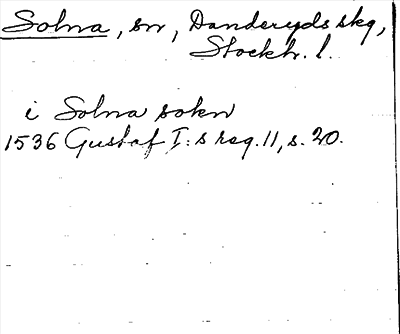 Solna, sn, Danderyds skg,
Stockh. l.
i Solna sokn
1536 Gustaf I:s reg. 11, s. 20.